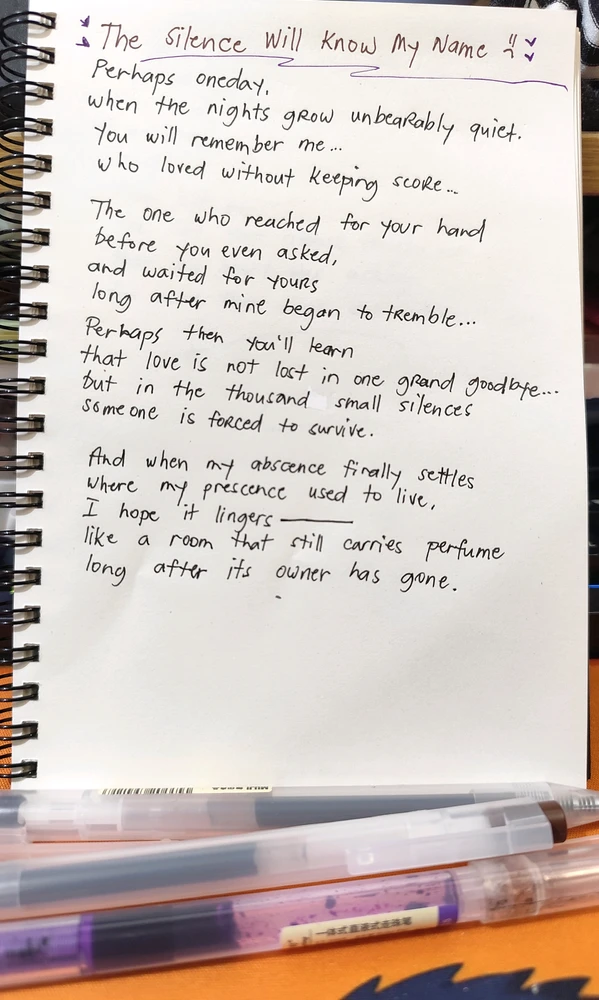 The Silence Will Know My Name
Perhaps oneday,
when the nights grow unbearably quiet.
You will remember me...
who loved without keeping score...
The one who reached for your hand
before you even asked,
and waited for yours
long after mine began to tremble...
Perhaps then you'll learn
that love is not lost in one grand goodbye...
but in the thousand small silences
someone is forced to survive.
And when my abscence finally settles
where my prescence used to live,
I hope it lingers —
like a room that still carries perfume
long after its owner has gone.